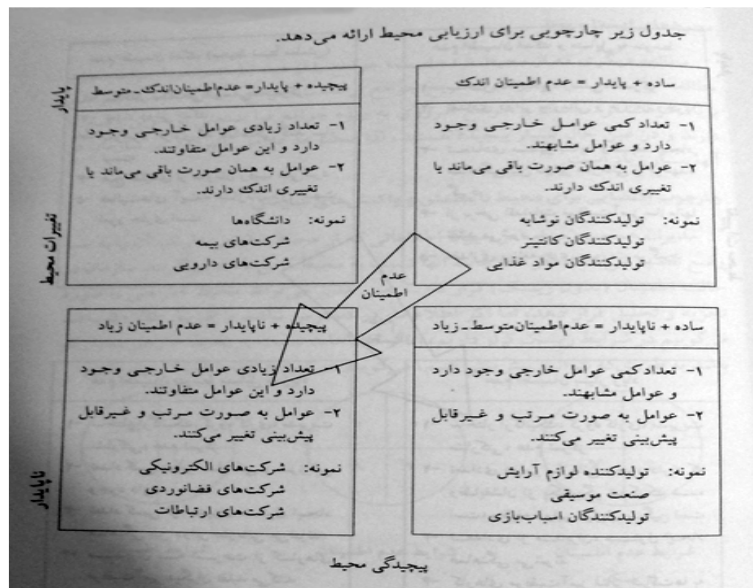 جدول زیر چارچوبی برای ارزیابی محیط ارائه می‌دهد.
ساده + پایدار = عدم اطمینان اندک
۱- تعداد کمی عوامل خارجی وجود
دارد و عوامل مشابهند.
۲- عوامل به همان صورت باقی می‌ماند یا
تغییری اندک دارند.
نمونه: تولیدکنندگان نوشابه
تولیدکنندگان کانتینر
تولیدکنندگان مواد غذایی
پیچیده + پایدار = عدم اطمینان اندک ـ متوسط
۱- تعداد زیادی عوامل خارجی وجود
دارد و این عوامل متفاوتند.
۲- عوامل به همان صورت باقی می‌ماند یا
تغییری اندک دارند.
نمونه: دانشگاه‌ها
شرکت‌های بیمه
شرکت‌های دارویی
پایدار
تغییرات محیط
عدم
اطمینان
ساده + ناپایدار = عدم اطمینان متوسط ـ زیاد
۱- تعداد کمی عوامل خارجی وجود دارد
و عوامل مشابهند.
۲- عوامل به صورت مرتب و غیرقابل
پیش‌بینی تغییر می‌کنند.
نمونه: تولیدکننده لوازم آرایش
صنعت موسیقی
تولیدکنندگان اسباب‌بازی
پیچیده + ناپایدار = عدم اطمینان زیاد
۱- تعداد زیادی عوامل خارجی وجود
دارد و این عوامل متفاوتند.
۲- عوامل به صورت مرتب و غیرقابل
پیش‌بینی تغییر می‌کنند.
نمونه: شرکت‌های الکترونیکی
شرکت‌های فضانوردی
شرکت‌های ارتباطات
ناپایدار
پیچیدگی محیط